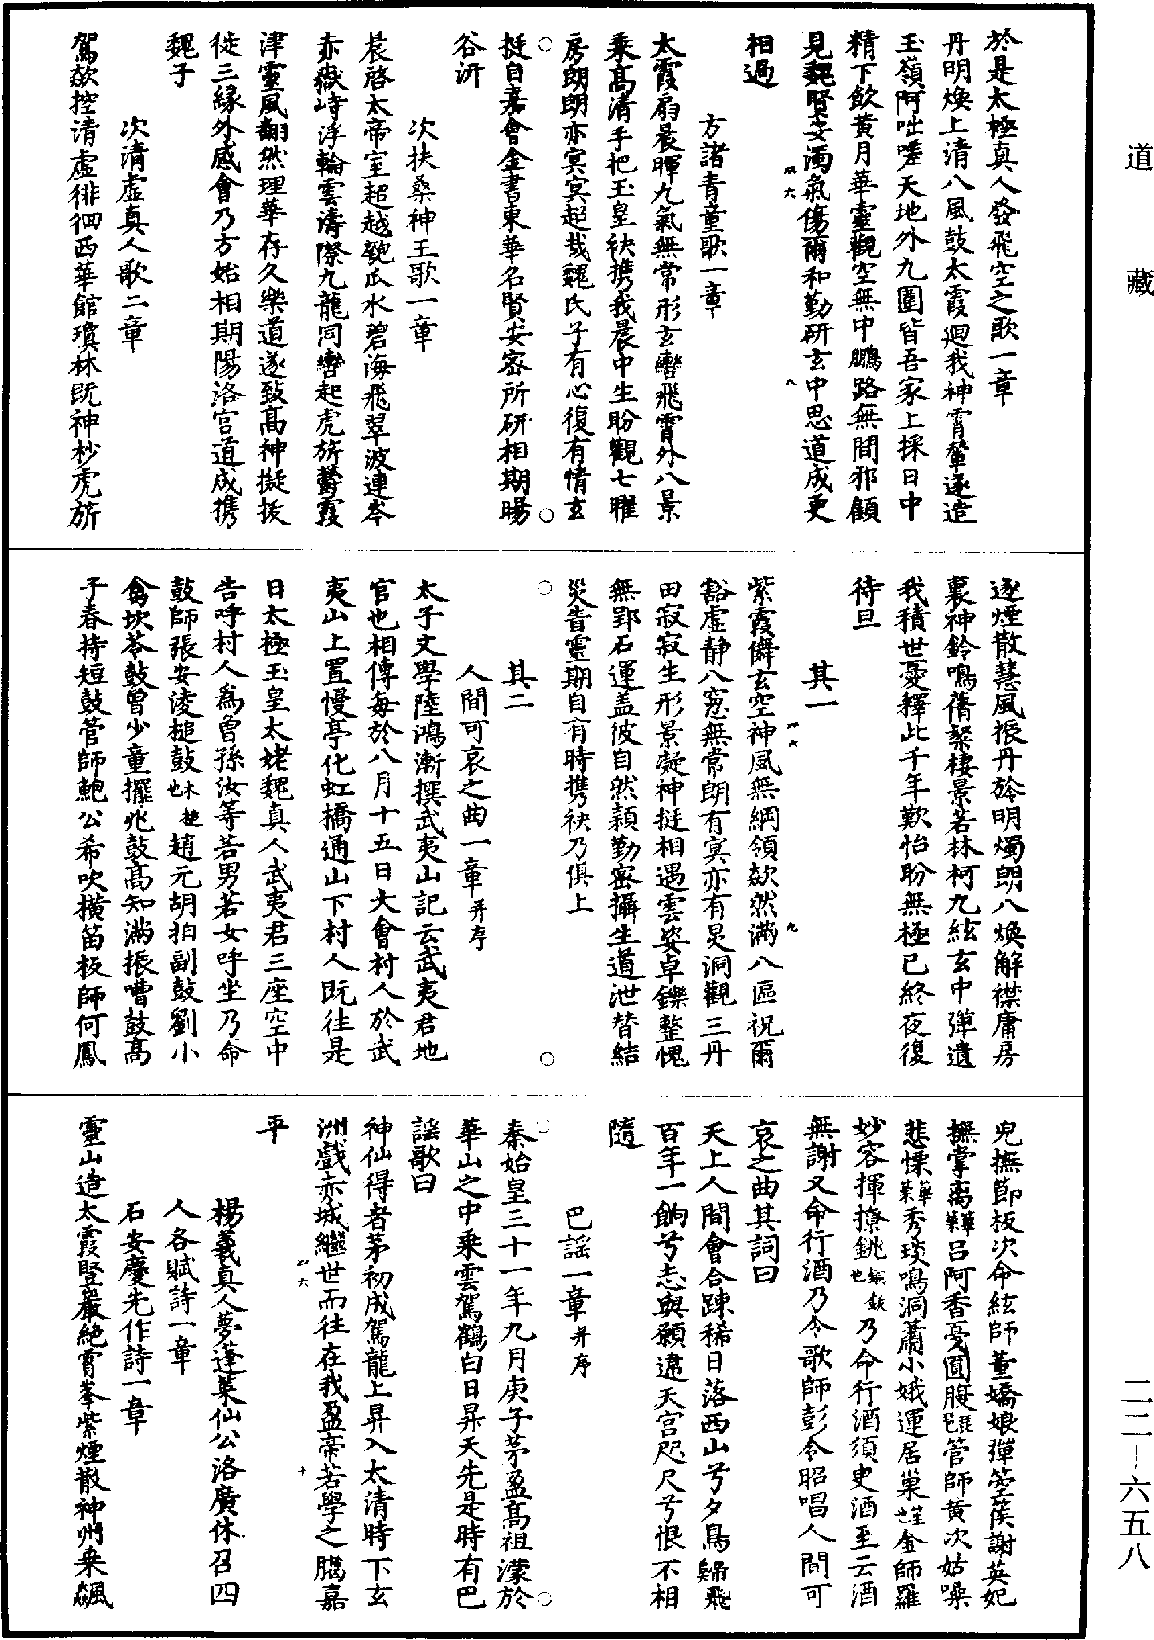 道藏
二二—六五八
於是太極真人發飛空之歌一章
丹明煥上清八風鼓太霞迴我神霄輦遂造
玉嶺阿咄嗟天地外九圍皆吾家上採日中
精下飲黃月華靈觀空無中鵬路無間邪顧
見魏賢安濁氣傷爾和勤研玄中思道成更
相過
四六
八
方諸青童歌一章
太霞扇晨暉九氣無常形玄轡飛霄外八景
乘高清手把玉皇袂攜我晨中生盼觀七曜
房朗朗亦冥冥起哉魏氏子有心復有情玄
挺自嘉會金書東華名賢安密所研相期暘
谷汧
次扶桑神王歌一章
晨啓太帝室超越匏瓜水碧海飛翠波連岑
赤嶽峙浮輪雲濤際九龍同轡起虎旂鬱霞
津靈風翻然理華存久樂道遂致高神擬拔
徙三緣外感會乃方始相期陽洛宮道成攜
魏子
次清虛真人歌二章
駕欻控清虛徘徊西華館瓊林既神杪虎旂
逐煙散慧風振丹旍明燭朗八煥解襟庸房
裏神鈴鳴蒨粲棲景若林柯九絃玄中彈遺
我積世憂釋此千年歎怡盼無極已終夜復
待旦
其一
紫霞儛玄空神風無綱領欻然滿八區祝爾
豁虛靜八窻無常朗有冥亦有炅洞觀三丹
田寂寂生形景凝神挺相遇雲姿卓鑠整愧
無郢石運盖彼自然穎勤密攝生道泄替結
災眚靈期自有時攜袂乃俱上
四六
九
其二
人間可哀之曲一章并序
太子文學陸鴻漸撰武夷山記云武夷君地
官也相傳每於八月十五日大會村人於武
夷山上置慢亭化虹橋通山下村人既往是
日太極玉皇太姥魏真人武夷君三座空中
告呼村人爲曾孫汝等若男若女呼坐乃命
鼓師張安淩槌鼓木槌也趙元胡拍副鼓劉小
禽坎苓鼓曾少童擺兆鼓高知滿振嘈鼓高
子春持短鼓管師鮑公希吹横笛板師何鳳
兒撫節板次命絃師董嬌娘彈箜篌謝英妃
撫掌离篳呂阿香戞圓腹琵琶管師黃次姑噪
悲慄篳篥秀琰鳴洞蕭小娥運居巢笙也金師羅
妙容揮撩銚銅鈸也乃命行酒須臾酒至云酒
無謝又命行酒乃令歌師彭令昭唱人間可
哀之曲其詞曰
天上人間會合踈稀日落西山兮夕鳥歸飛
百年一餉兮志與願違天宮咫尺兮恨不相
隨
巴謡一章并序
秦始皇三十一年九月庚子茅盈高祖濛於
華山之中乘雲駕鶴白日昇天先是時有巴
謡歌曰
神仙得者茅初成駕龍上昇入太清時下玄
洲戲赤城繼世而往在我盈帝若學之臘嘉
平
四六
十
楊羲真人夢蓬萊仙公洛廣休召四
人各賦詩一章
石安慶先作詩一章
靈山造太霞豎巖絶霄峯紫煙散神州乘飈